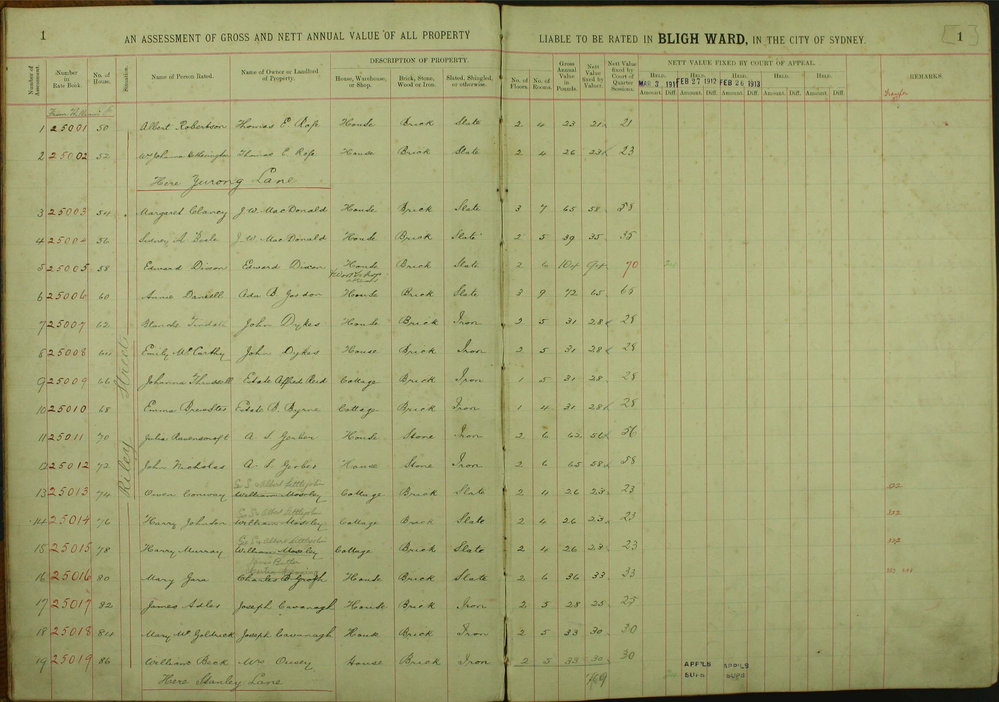 1
AN ASSESSMENT OF GROSS AND NETT ANNUAL VALUE OF ALL PROPERTY
LIABLE TO BE RATED IN BLIGH WARD, IN THE CITY OF SYDNEY.
1
Number of Assessment.
Number in Rate Book.
No. of House.
Situation.
Name of Person Rated.
Name of Owner or Landlord of Property.
DESCRIPTION OF PROPERTY.
House, Warehouse, or Shop.
Brick, Stone, Wood or Iron.
Slated, Shingled, or otherwise.
No. of Floors.
No. of Rooms.
Gross Annual Value in Pounds.
Nett Value fixed by Valuer.
Nett Value fixed by Court of Quarter Sessions.
NETT VALUE FIXED BY COURT OF APPEAL.
HELD. HELD. HELD. HELD. HELD.
MAR 3, 1911 FEB 27 1912 FEB 26 1913
Amount. Diff. Amount. Diff. Amount. Diff. Amount. Diff. Amount. Diff.
REMARKS.
Transfer
Riley Street
1 25001 50 Albert Robertson Thomas E Rofe House Brick Slate 2 4 23 21 21
2 25002 52 Thomas E. Rofe House Brick Slate 2 4 26 23 23
Here Yurong Lane
3 25003 54 Margaret Clancy J. W. MacDonald House Brick Slate 3 7 65 58 58
4 25004 56 Sydney A J. W. MacDonald House Brick Slate 2 5 39 35 35
5 25005 58 Edward Dixon Edward Dixon House Brick Slate 2 6 104 94 70
6 25006 60 Annie Ada B. House Brick Slate 3 9 72 65 65
7 25007 62 Blanche Tindale John Dykes House Brick Iron 2 5 31 28 28
8 25008 64 Emily McCarthy John Dykes House Brick Iron 2 5 31 28 28
9 25009 66 Johanna Estate Alfred Reid Cottage Brick Iron 1 5 31 28 28
10 25010 68 Emma Estate B. Byrne Cottage Brick Iron 1 4 31 28 28
11 25011 70 Julia Ravenscroft A. S. Gerber House Stone Iron 2 6 62 56 56
12 25012 72 John Nicholas A. S. Gerber House Stone Iron 2 6 65 58 58
Albert Littlejohn
13 25013 74 Owen Conway William Moseley Cottage Brick Slate 2 4 26 23 23
Albert Littlejohn
14 25014 76 Harry Johnson William Moseley Cottage Brick Slate 2 4 26 23 23
Albert Littlejohn
15 25015 78 Harry Murray William Moseley Cottage Brick Slate 2 4 26 23 23
16 25016 80 Mary Charles B. House Brick Slate 2 6 36 33 33
17 25017 82 James Joseph Cavanagh House Brick Iron 2 5 28 25 25
18 25018 84 Mary McGoldrick Joseph Cavanagh House Brick Iron 2 5 33 30 30
19 25019 86 William Beck Mrs Ousey House Brick Iron 2 5 33 30 30
Here Stanley Lane
769
APP'LS APP'LS
SUPS SUPS